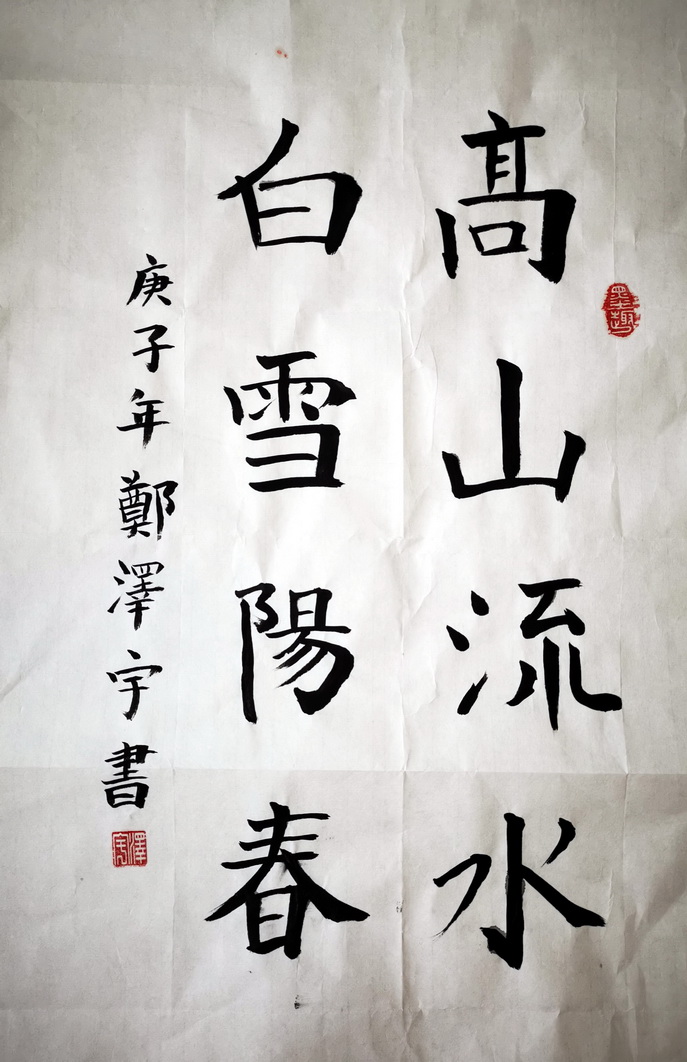 髙山流水
白雪陽春
庚子年鄭澤宇書
墨趣